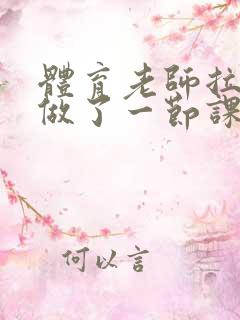 體育老師拉
做了一節課
何以言